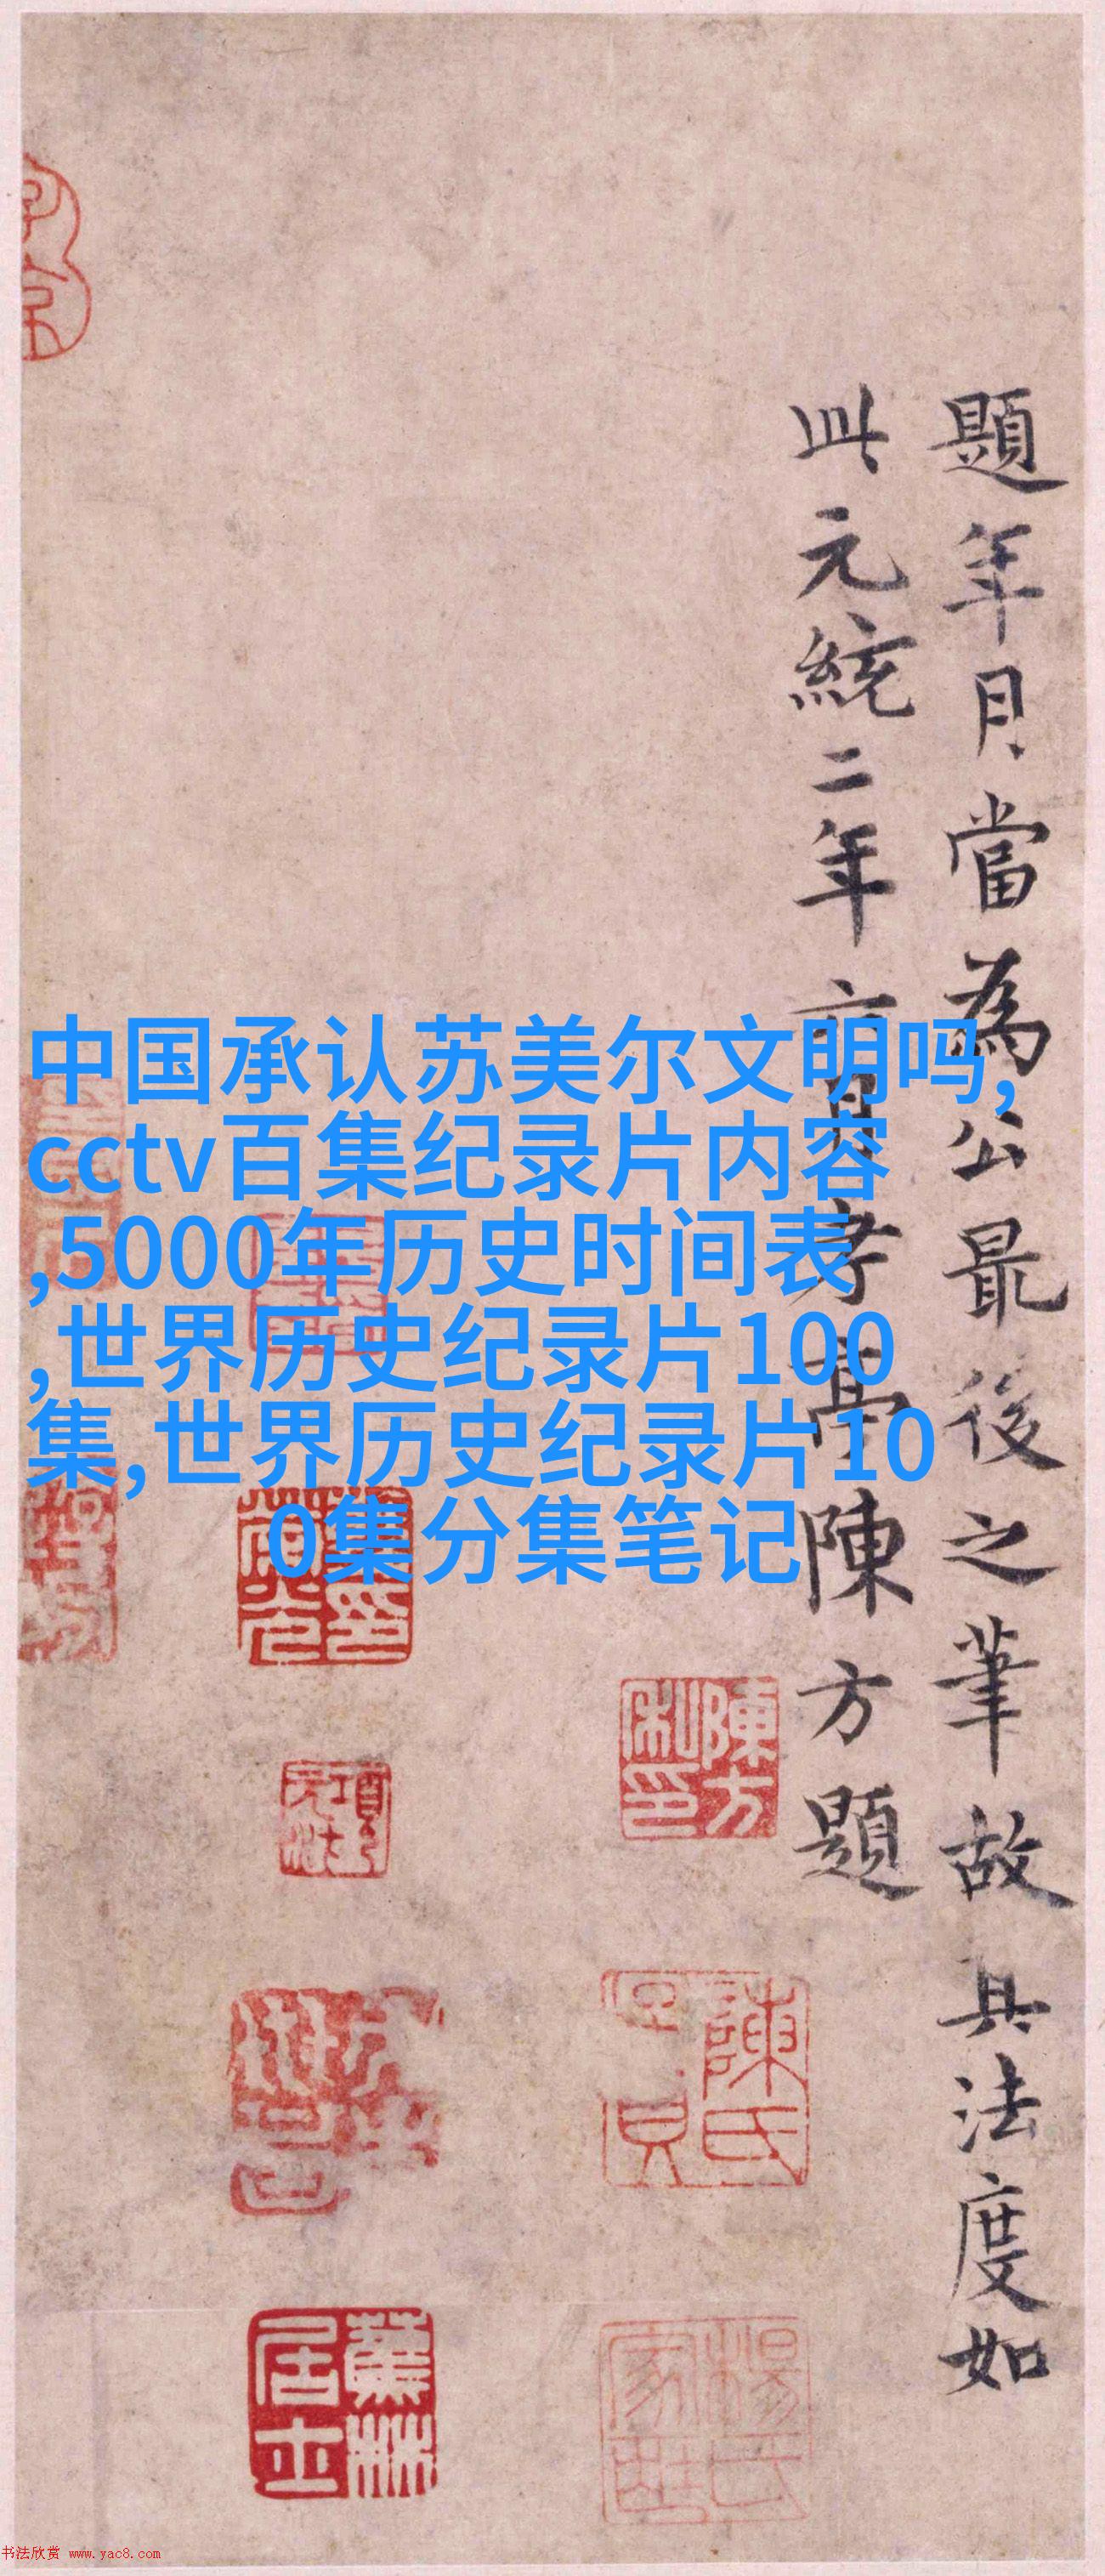 題年月當為公最後之筆故其法度如
此元統二年六月孝亭陳方題
中国承认苏美尔文明吗,
cctv百集纪录片内容
,5000年历史时间表
,世界历史纪录片100
集,世界历史纪录片10
0集分集笔记
陳方
私印
項元汴
陳氏
蕉林
居士
楊氏
家藏
书法欣赏 www.yac8.com